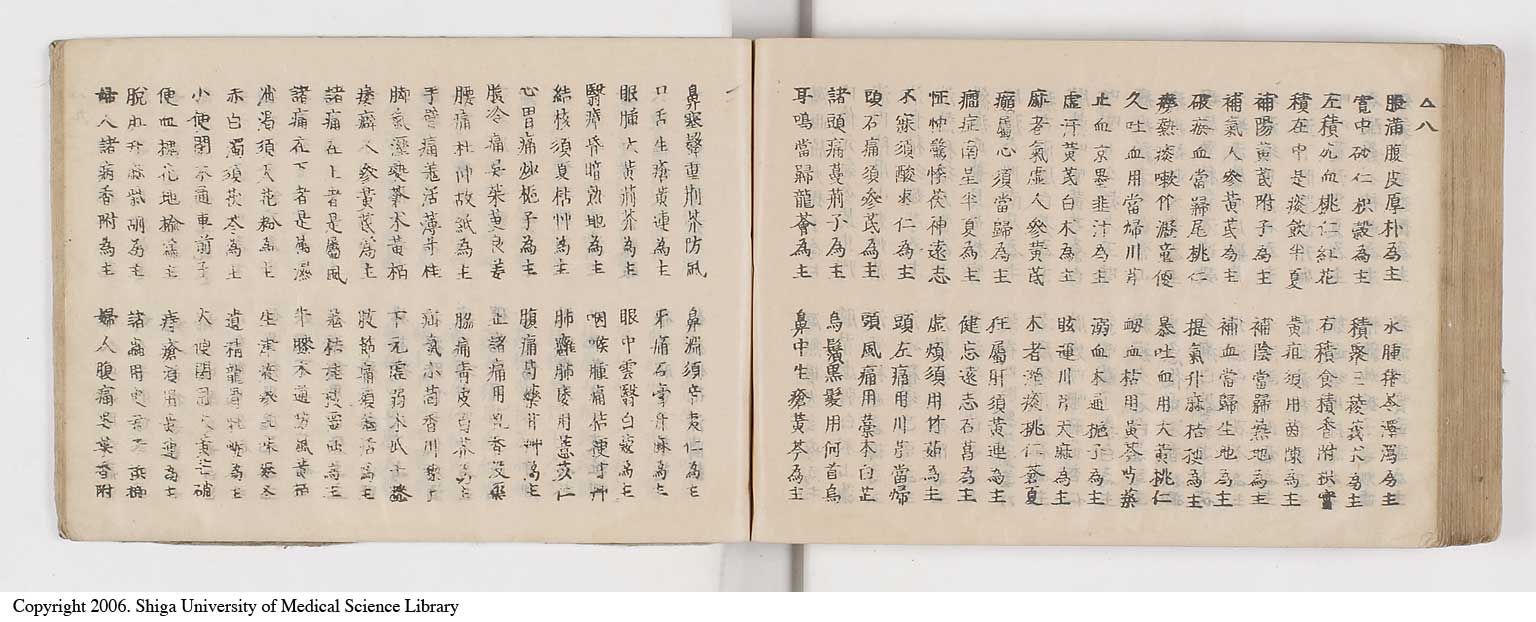 脹滿腹皮厚朴為主　水腫猪苓澤瀉為主
寛中砂仁枳殼為主　積聚三稜莪朮為主
左積死血桃仁紅花　右積食積香附枳實
積在中是痰飲半夏　黄疸須用茵陳為主
補陽黄茋附子為主　補陰當歸熟地為主
補氣人參黄茋為主　補血當歸生地為主
破瘀血當歸尾桃仁　提氣升麻桔梗為主
痨熱痰嗽竹瀝童便　暴吐血用大黄桃仁
久吐血用當帰川芎　衂血枯用黄芩芍薬
止血京墨韭汁為主　溺血木通梔子為主
虚汗黄茋白朮為主　眩運川芎天麻為主
麻者氣虚人參黄茋　木者湿痰桃仁蒼夏
癲屬心須當歸為主　狂屬肝須黄連為主
癇症南星半夏為主　健忘遠志石菖為主
怔忡驚悸茯神遠志　虚煩須用竹茹為主
不寐須酸棗仁為主　頭左痛用川芎當帰
頭右痛須參茋為主　頭風痛用藁本白芷
諸頭痛蔓荊子為主　烏鬚黒髮用何首烏
耳鳴當歸龍薈為主　鼻中生瘡黄芩為主
鼻塞聲重荊芥防風　鼻淵須辛夷仁為主
口舌生瘡黄連為主　牙痛石膏升麻為主
眼腫大黄荊芥為主　眼中雲翳白蔻為主
翳瘴昏暗熟地為主　咽喉腫痛桔梗甘艸
結核須夏枯艸為主　肺癰肺痿用薏苡仁
心胃痛炒梔子為主　腹痛芍薬甘艸為主
腹冷痛呉茱萸良姜　止諸痛用乳香没薬
腰痛杜仲故紙為主　脇痛青皮白芥為主
手臂痛羗活薄荷桂　疝氣小茴香川楝子
脚氣湿熱蒼朮黄栢　下元虚弱木瓜牛膝
痿躄人參黄茋為主　肢節痛須羗活為主
諸痛在上者是屬風　羗桔桂枝霊仙為主
諸痛在下者是屬湿　牛膝木通防風黄栢
消渇須天花粉為主　生津液麥五味麥冬
赤白濁須茯苓為主　遺精龍骨牡蛎為主
小便閉木通車前子　大便閉用大黄芒硝
便血槐花地榆為主　痔瘡須用黄連為主
脱肛升麻柴胡為主　諸蟲用使君子
婦人諸病香附為主　婦人腹痛呉茱香附
Copyright 2006. Shiga University of Medical Science Library